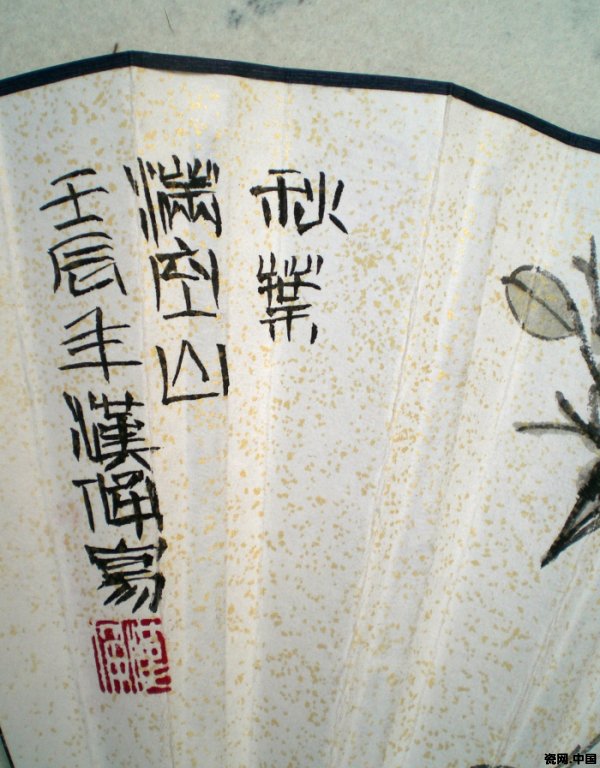 秋葉
滿空山
壬辰年漢偉寫
瓷网.中国